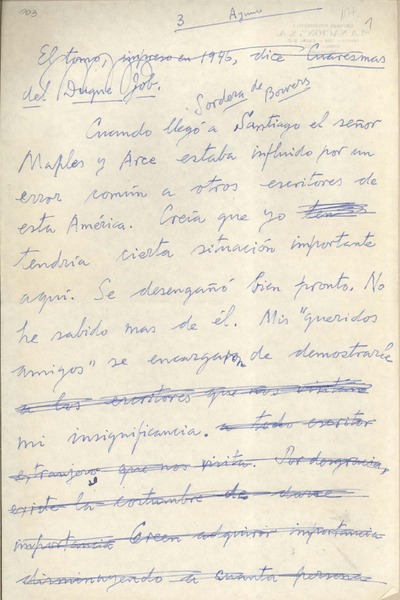 703
3
1
El tomo, impreso en 1946, dice Cuaresmas
del Duque Job.
Sordera de Bowers
Cuando llegó a Santiago el señor
Maples y Arce estaba influido por un
error común a otros escritores de
esta América. Creía que yo
tendría cierta situación importante
aquí. Se desengañó bien pronto. No
he sabido mas de él. Mis "queridos
amigos" se encargaron de demostrarle
a los escritores que nos visitan
mi insignificancia. a todo escritor
extranjero que nos visita. Por desgracia,
existe la costumbre de darse
importancia Creen adquirir importancia
disminuyendo a cuanta persona